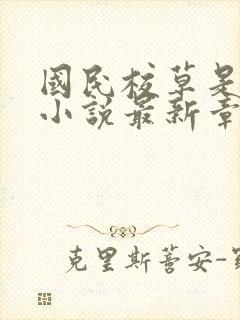 國民校草是
小說最新章
克里斯蒂安-